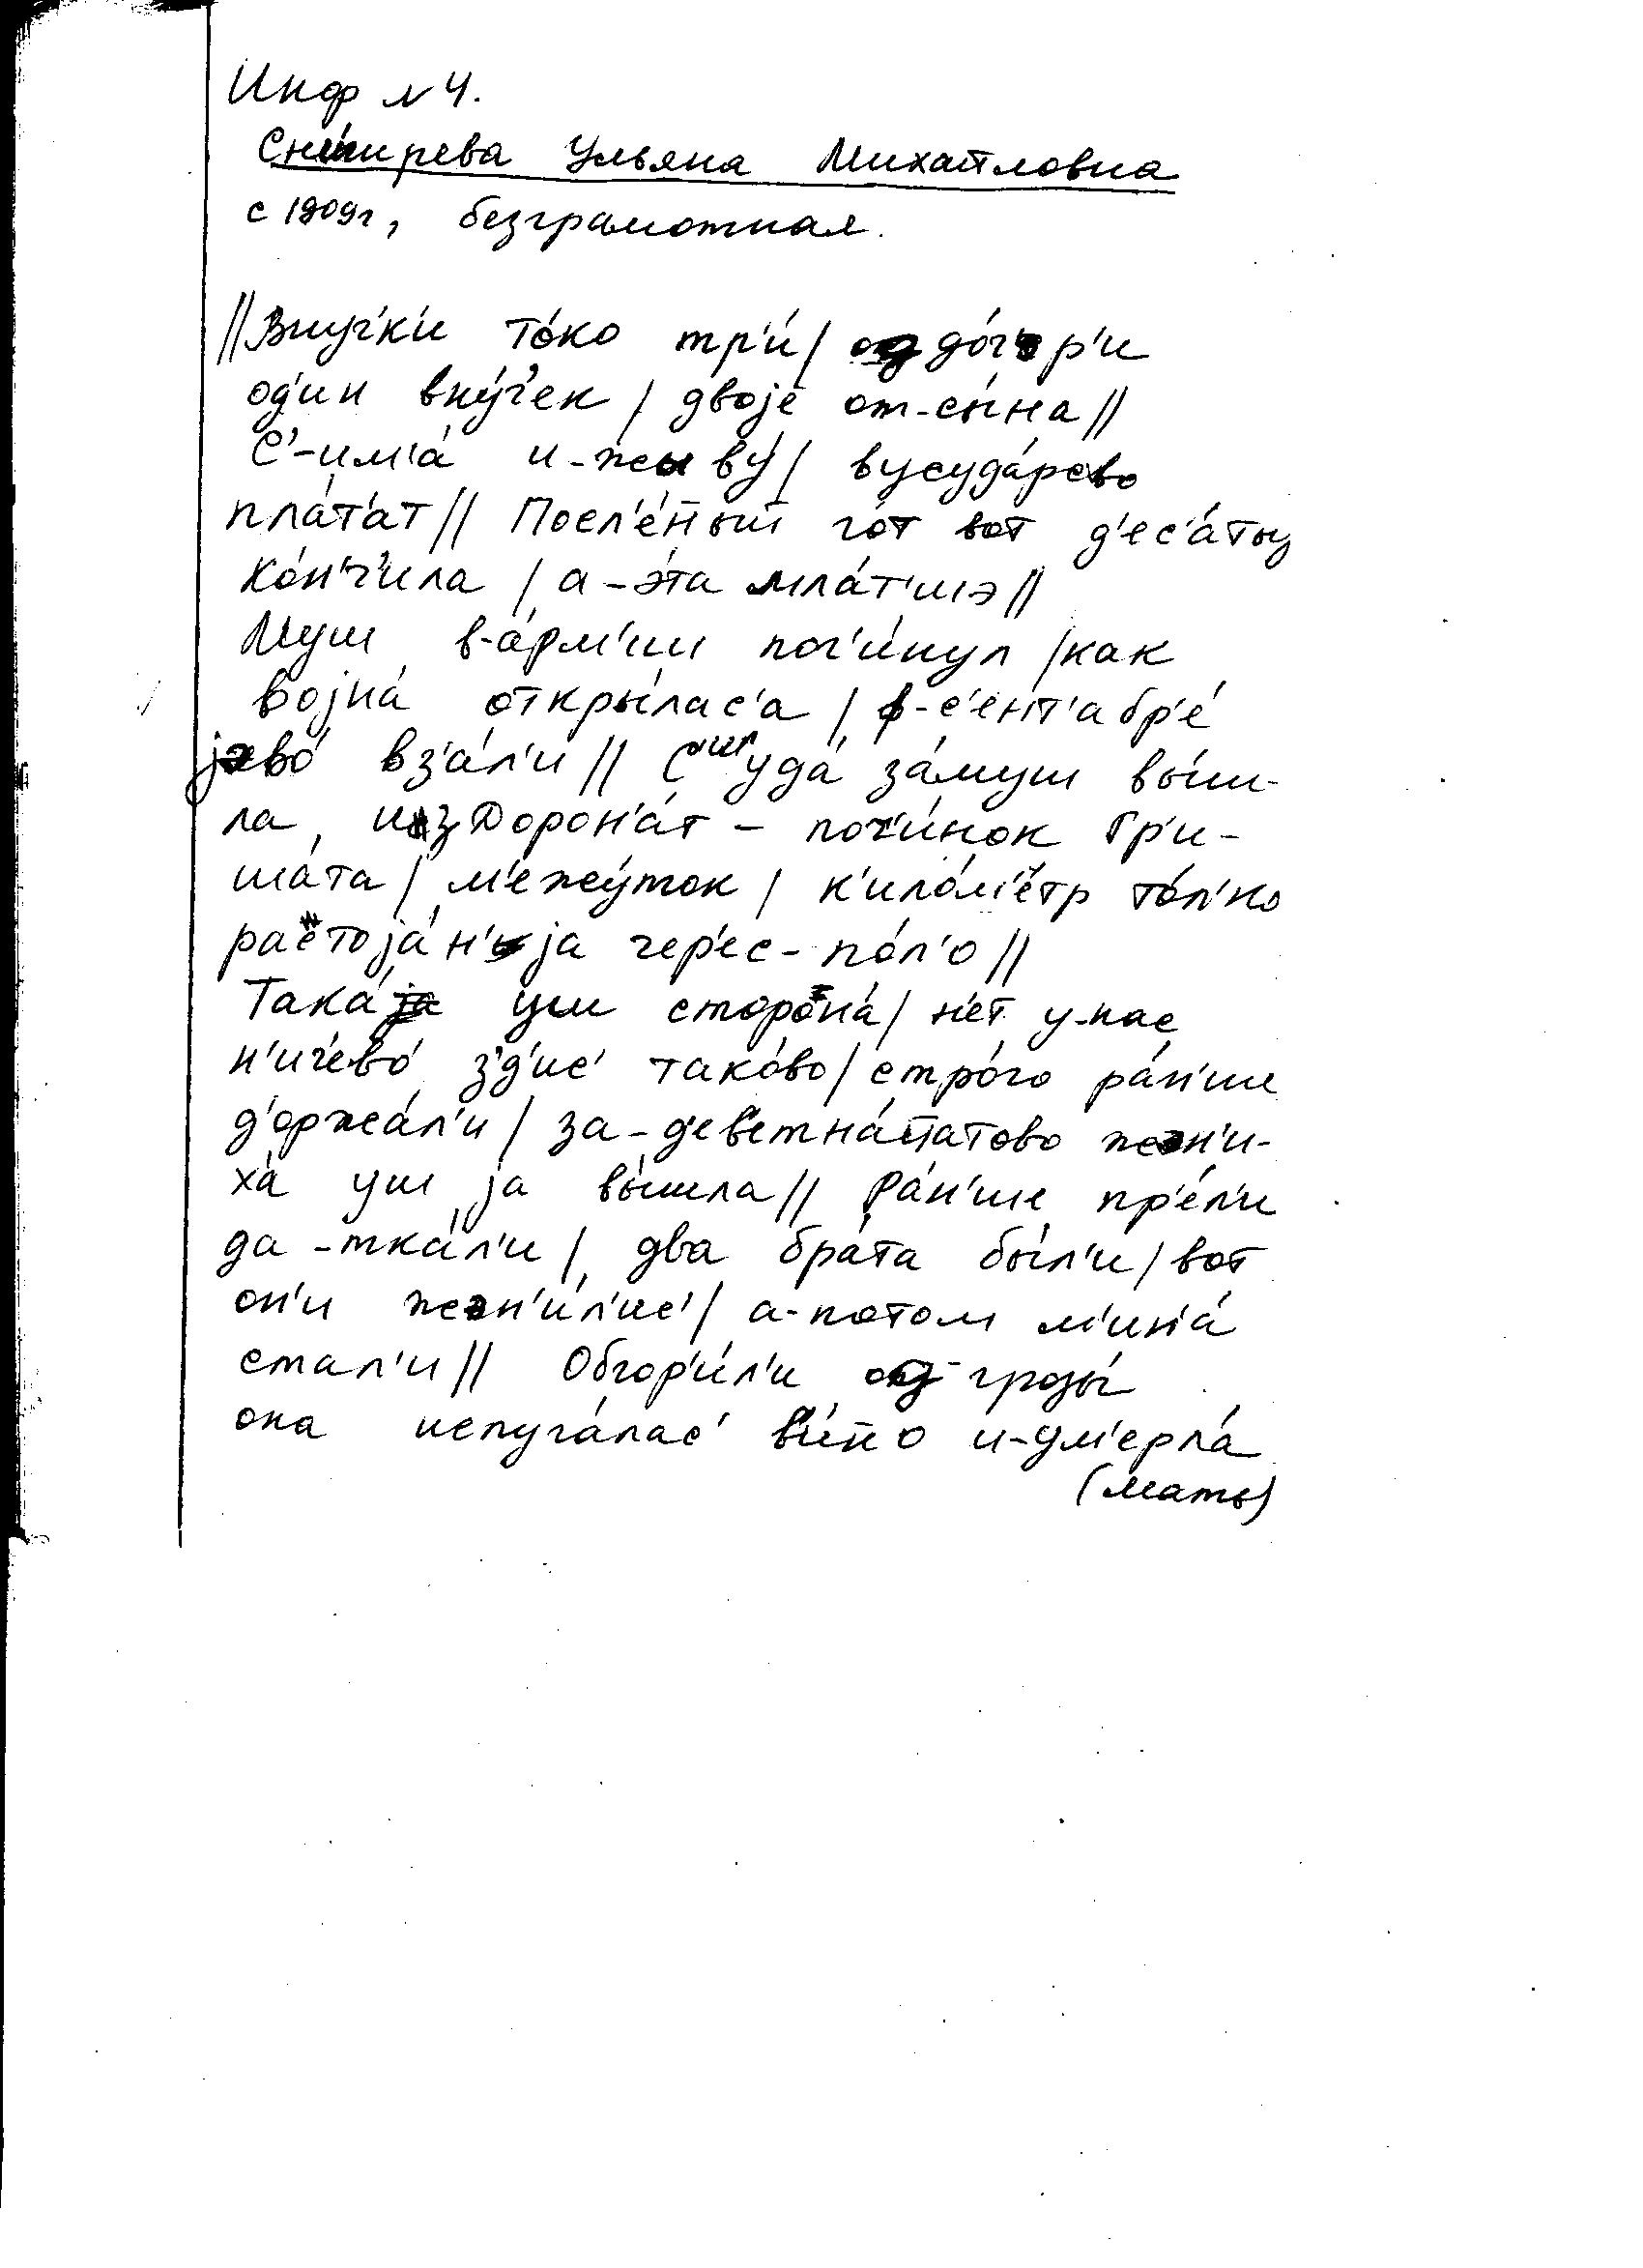 Инф № 4.
Снигирева Ульяна Михайловна
с 1909г, безграмотная.
//Внуч'к'и то́ко тр'и́/ од до́ч'ер'и
од'ин вну́ч'ек / двоjе от-сы́на//
С'-им'а́ и-жыву́/ вусуда́рсво
пла́т'ат// Посл'е́йный го́т вот д'ес'а́ты
ко́н'ч'ила / а-э́та мла́т'шэ//
Муш в-а́рм'ии пог'и́нул /как
воjна́ откры́лас'а / в-с'ент'абр'е́
jево́ вз'а́л'и // Суда́ за́муш вы́ш-
ла, из Дорон'а́т - поч'и́нок Гр'и-
ша́та / м'ежу́ток / к'ило́м'етр то́л'ко
растоjа́н'иjа чер'ес-по́л'о //
Така́ уш сторона́/ н'ет у-нас
н'ич'ево́ з'д'ис' тако́во/ стро́го ра́н'ше
д'оржа́л'и / за-д'ев'етна́йатово жен'и-
ха́ уш jа вы́шла// Ра́н'ше пр'е́л'и
да-тка́л'и / два бра́та бы́л'и / вот
он'и жен'и́л'ис' / а-потом м'ин'а́
стал'и // Обгор'и́л'и од-грозы́
она испуга́лас' ви́йно и-ум'ерла́
(мать)